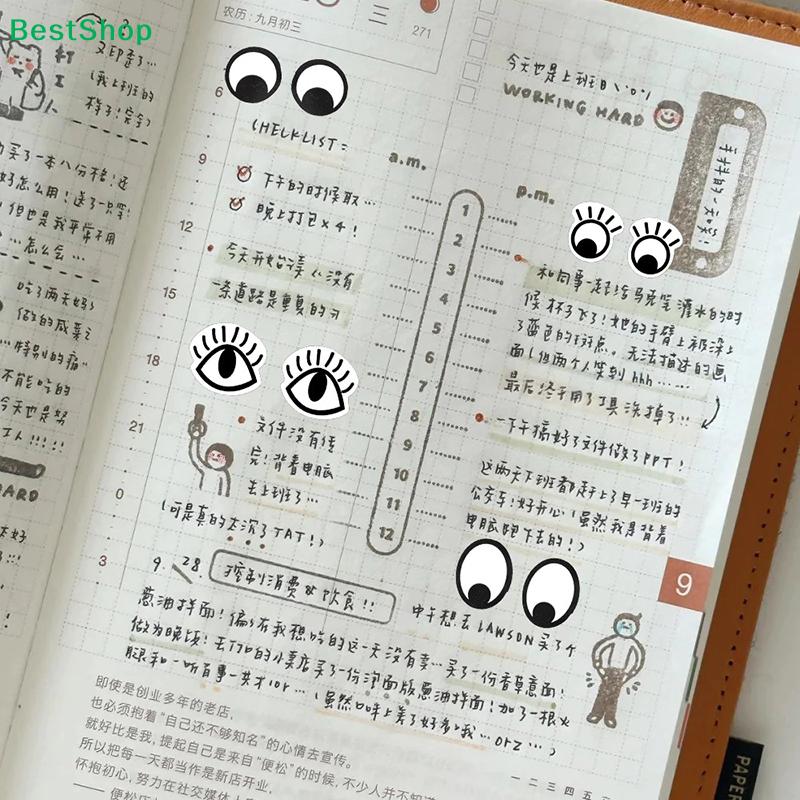 BestShop
农历:九月初三
三
271
又印歪了…
打
工
(我上班的
样子(完全)
买了一本八份格!还
好怎么用!送了一只笔!
但也是我平常不用
…怎么会…
吃了两天好
做的咸菜
…特别的痛…
不能吃的
今天也是努
工人!!!!
HARD
6
9
12
15
18
21
0
3
CHECKLIST:
a.m.
下午的时候取…
晚上打包×4!
今天开始读《没有
一条道路是重复的》
文件没有传
完,背着电脑
去上班了…
(可是真的太沉了TAT!)
1
2
3
4
5
6
7
8
9
10
11
12
今天也是上班日\(^o^)/
WORKING HARD
手抖的一如既
p.m.
和同事一起给马克笔灌水的时
候,杯子飞了!她的手臂上被染上
了蓝色的斑点。无法描述的画
面(但两个人笑到hhh……
最后终于用了工具洗掉了…
一下午搞好了文件做了PPT!
这两天下班都赶上了早一班的
公交车!好开心(虽然我是背着
电脑跑下去的!)
9
9.28.
控制消费&饮食!!
中午想去LAWSON买个
葱油拌面!偏偏在我想吃的这一天没有卖…买了一份香草意面!
做为晚饭!去了170的小卖店买了一份泡面版葱油拌面!加了一根火
腿和一听百事一共才10r…(虽然口味上差了好多我…orz…)
即使是创业多年的老店,
也必须抱着“自己还不够知名”的心情去宣传。
就好比是我,提起自己是来自“便松”的时候,不少人并不知道
所以把每一天都当作是新店开业,
怀抱初心,努力在社交媒体上
—— 便松
一 二 三 四 五
PAPER